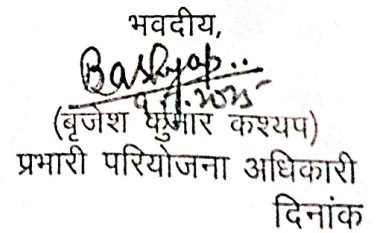 भवदीय,
(बृजेश कुमार कश्यप)
प्रभारी परियोजना अधिकारी
दिनांक